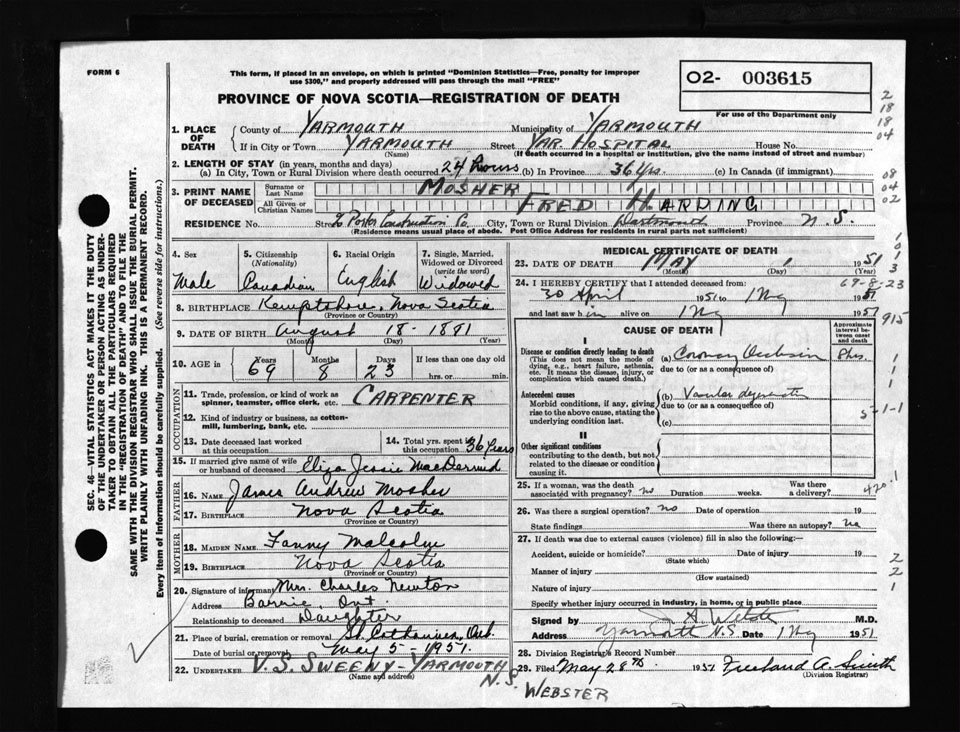 FORM 6
This form, if placed in an envelope, on which is printed "Dominion Statistics—Free, penalty for improper
use $300," and properly addressed will pass through the mail "FREE"
O2- 003615
For use of the Department only
PROVINCE OF NOVA SCOTIA—REGISTRATION OF DEATH
1. PLACE OF DEATH
County of YARMOUTH Municipality of YARMOUTH
If in City or Town YARMOUTH Street YAR. HOSPITAL House No.
(Name) (If death occurred in a hospital or institution, give the name instead of street and number)
2. LENGTH OF STAY (in years, months and days)
(a) In City, Town or Rural Division where death occurred 24 hours (b) In Province 36 yrs. (c) In Canada (if immigrant)
3. PRINT NAME OF DECEASED
Surname or Last Name MOSHER
All Given or Christian Names FRED HARDING
RESIDENCE No. Street Construction Co. City, Town or Rural Division Dartmouth Province N. S.
(Residence means usual place of abode. Post Office Address for residents in rural parts not sufficient)
2
18
18
04
08
04
02
1
0
1
3
69-8-23
915
1
1
1
571-1
420.1
2
2
1
SEC. 46—VITAL STATISTICS ACT MAKES IT THE DUTY
OF THE UNDERTAKER OR PERSON ACTING AS UNDER-
TAKER TO OBTAIN ALL THE PARTICULARS REQUIRED
IN THE "REGISTRATION OF DEATH" AND TO FILE THE
SAME WITH THE DIVISION REGISTRAR WHO SHALL ISSUE THE BURIAL PERMIT.
WRITE PLAINLY WITH UNFADING INK. THIS IS A PERMANENT RECORD.
Every item of information should be carefully supplied. (See reverse side for instructions.)
4. Sex
Male
5. Citizenship
(Nationality)
Canadian
6. Racial Origin
English
7. Single, Married,
Widowed or Divorced
(write the word)
Widowed
8. BIRTHPLACE Kemptshore, Nova Scotia
(Province or Country)
9. DATE OF BIRTH August 18 - 1881
(Month) (Day) (Year)
10. AGE
Years Months Days If less than one day old
69 8 23 hrs. or min.
OCCUPATION
11. Trade, profession, or kind of work as
spinner, teamster, office clerk, etc. CARPENTER
12. Kind of industry or business, as cotton-
mill, lumbering, bank, etc.
13. Date deceased last worked
at this occupation
14. Total yrs. spent in
this occupation 36 Years
15. If married give name of wife
or husband of deceased Eliza Jessie MacDermid
FATHER
16. Name James Andrew Mosher
17. BIRTHPLACE Nova Scotia
(Province or Country)
MOTHER
18. MAIDEN NAME Fanny Malcolm
19. BIRTHPLACE Nova Scotia
(Province or Country)
20. Signature of informant Mrs. Charles Newton
Address Barrie, Ont.
Relationship to deceased Daughter
21. Place of burial, cremation or removal St. Catharines, Ont.
Date of burial or removal May 5 - 1951.
22. UNDERTAKER V. S. SWEENY - YARMOUTH N. S.
(Name and address)
WEBSTER
MEDICAL CERTIFICATE OF DEATH
23. DATE OF DEATH MAY 1 1951
(Month) (Day) (Year)
24. I HEREBY CERTIFY that I attended deceased from:
30 April 1951 to 1 My 1951
and last saw him alive on 1 My 1951
CAUSE OF DEATH
Approximate
interval be-
tween onset
and death
I
Disease or condition directly leading to death
(This does not mean the mode of
dying, e.g., heart failure, asthenia,
etc. It means the disease, injury, or
complication which caused death.)
(a) Coronary Occlusion 8 hrs.
due to (or as a consequence of)
Antecedent causes
Morbid conditions, if any, giving
rise to the above cause, stating the
underlying condition last.
(b) Vascular
due to (or as a consequence of)
(c)
II
Other significant conditions
contributing to the death, but not
related to the disease or condition
causing it.
25. If a woman, was the death
associated with pregnancy? no Duration weeks. Was there
a delivery?
26. Was there a surgical operation? no Date of operation 19
State findings Was there an autopsy? No
27. If death was due to external causes (violence) fill in also the following:—
Accident, suicide or homicide? Date of injury 19
(State which)
Manner of injury
(How sustained)
Nature of injury
Specify whether injury occurred in industry, in home, or in public place
Signed by M.D.
Address Yarmouth N.S Date 1 My 1951
28. Division Registrar's Record Number
29. Filed May 28th 1951 Freeland A. Smith
(Division Registrar)